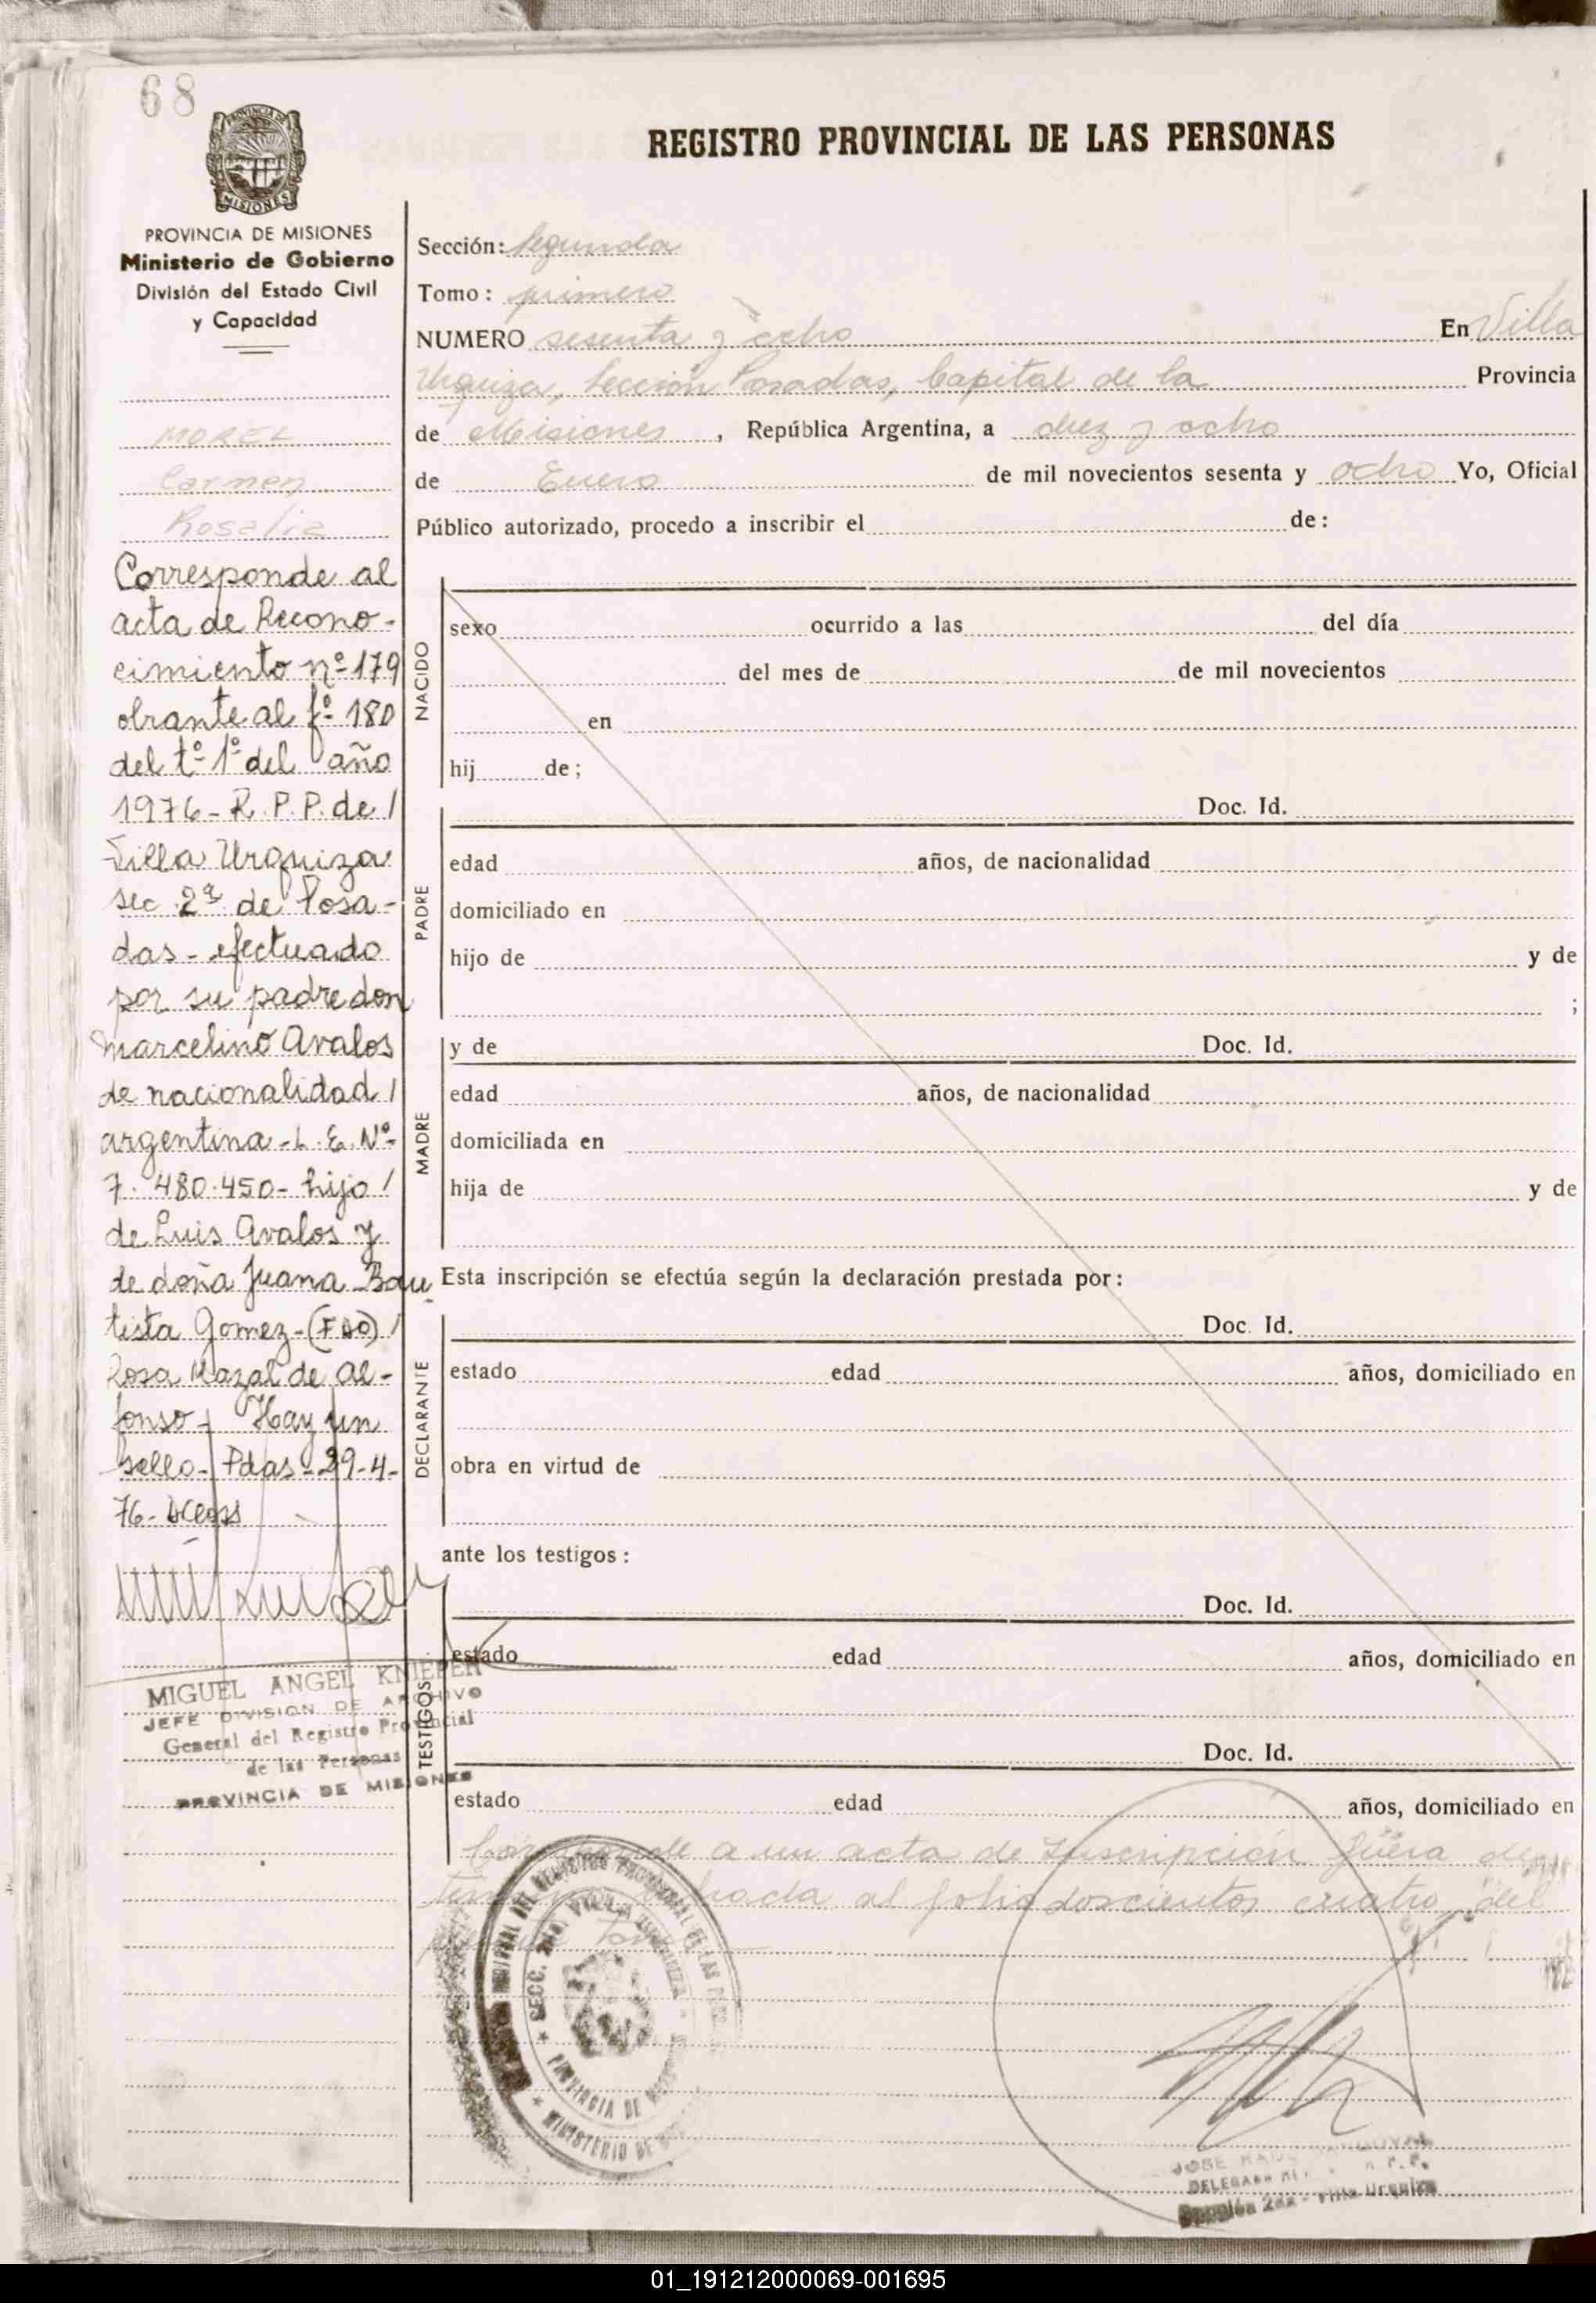 68
PROVINCIA DE
MISIONES
REGISTRO PROVINCIAL DE LAS PERSONAS
PROVINCIA DE MISIONES
Ministerio de Gobierno
División del Estado Civil
y Capacidad
MOREL
Carmen
Rosalia
Corresponde al
acta de Recono-
cimiento nº 179
obrante al fº 180
del tº 1º del año
1976 - R. P. P. de /
Villa Urquiza
sec 2ª de Posa-
das - efectuado
por su padre don
Marcelino Avalos
de nacionalidad /
argentina - L. E. Nº
7.480.450 - hijo /
de Luis Avalos y
de doña Juana Bau
tista Gomez - (FDO) /
Rosa Mazal de Al-
fonso - Hay un
sello - Pdas - 29-4-
76 -
MIGUEL ANGEL KNIEPER
JEFE DIVISION DE ARCHIVO
General del Registro Provincial
de las Personas
PROVINCIA DE MISIONES
Sección: Segunda
Tomo: primero
NUMERO sesenta y ocho En Villa
Urquiza, Sección Posadas, Capital de la Provincia
de Misiones, República Argentina, a diez y ocho
de Enero de mil novecientos sesenta y ocho Yo, Oficial
Público autorizado, procedo a inscribir el de:
NACIDO
sexo ocurrido a las del día
del mes de de mil novecientos
en
hij de;
PADRE
Doc. Id.
edad años, de nacionalidad
domiciliado en
hijo de y de
;
MADRE
y de Doc. Id.
edad años, de nacionalidad
domiciliada en
hija de y de
Esta inscripción se efectúa según la declaración prestada por:
DECLARANTE
Doc. Id.
estado edad años, domiciliado en
obra en virtud de
ante los testigos:
TESTIGOS
Doc. Id.
estado edad años, domiciliado en
Doc. Id.
estado edad años, domiciliado en
a un acta de Inscripción fuera de
al folio doscientos cuatro del
SECC. 2da. VILLA URQUIZA
PROVINCIA DE
MINISTERIO DE
JOSE
DELEGADO
Sección 2da - Villa Urquiza
01_191212000069-001695